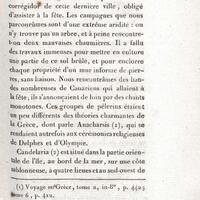 corrégidor de cette dernière ville, obligé
d'assister à la fête. Les campagnes que nous
parcourûmes sont d'une extrême aridité : on
n'y trouve pas un arbre, et à peine rencontre-
t-on deux mauvaises chaumières. Il a fallu
des travaux immenses pour mettre en culture
une partie de ce sol brûlé, et pour enclore
chaque propriété d'un mur informe de pier-
res, sans liaison. Nous rencontrâmes des ban-
des nombreuses de Canariens qui allaient à
la fête, ils s'annonçaient de loin par des chants
monotones. Ces groupes de pèlerins étaient
un peu différents des théories charmantes de
la Grèce, dont parle Anacharsis (1), qui se
rendaient autrefois aux cérémonies religieuses
de Delphes et d'Olympie.
Candelaria (2) est située dans la partie orien-
tale de l'île, au bord de la mer, sur une côte
sablonneuse, à quatre lieues et au sud-ouest de
(1) Voyage en Grèce, tome 2, in-8°, p. 442;
tome 6, p. 422.